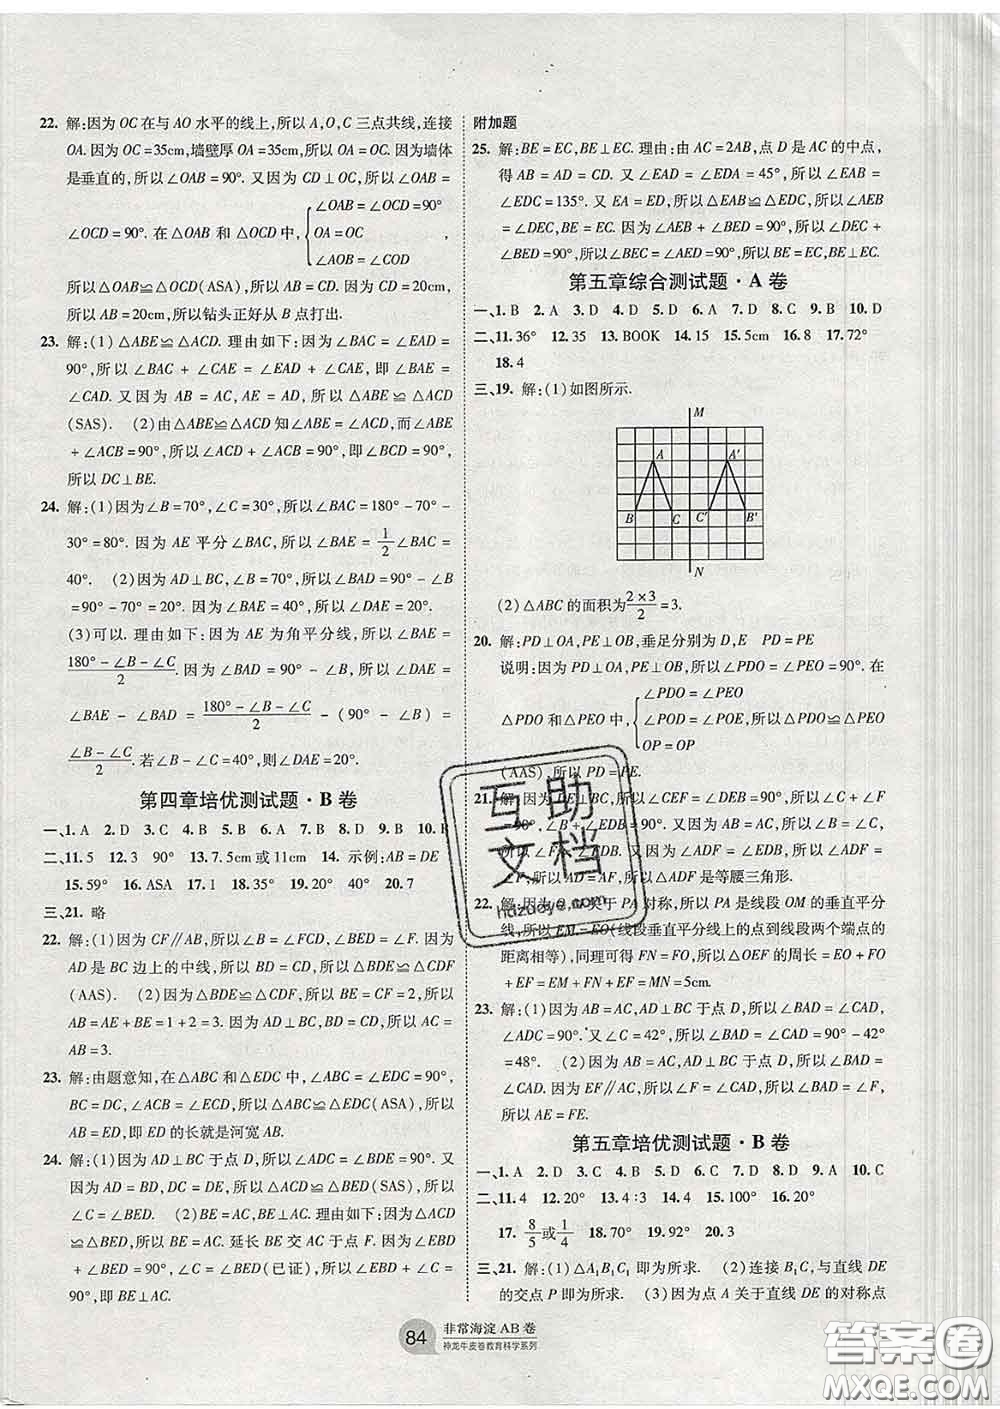 22. 解:因为OC在与AO水平的线上,所以A,O,C三点共线,连接
OA. 因为OC=35cm,墙壁厚OA=35cm,所以OA=OC. 因为墙体
是垂直的,所以∠OAB=90°. 又因为CD⊥OC,所以∠OAB=
∠OCD=90°. 在△OAB和△OCD中,{∠OAB=∠OCD=90° OA=OC ∠AOB=∠COD,
所以△OAB≌△OCD(ASA),所以AB=CD. 因为CD=20cm,
所以AB=20cm,所以钻头正好从B点打出.
23. 解:(1)△ABE≌△ACD. 理由如下:因为∠BAC=∠EAD=
90°,所以∠BAC+∠CAE=∠EAD+∠CAE,即∠BAE=
∠CAD. 又因为AB=AC,AE=AD,所以△ABE≌△ACD
(SAS). (2)由△ABE≌△ACD知∠ABE=∠ACD,而∠ABE
+∠ACB=90°,所以∠ACD+∠ACB=90°,即∠BCD=90°,
所以DC⊥BE.
24. 解:(1)因为∠B=70°,∠C=30°,所以∠BAC=180°-70°-
30°=80°. 因为AE平分∠BAC,所以∠BAE=1/2∠BAC=
40°. (2)因为AD⊥BC,∠B=70°,所以∠BAD=90°-∠B
=90°-70°=20°. 因为∠BAE=40°,所以∠DAE=20°.
(3)可以. 理由如下:因为AE为角平分线,所以∠BAE=
(180°-∠B-∠C)/2. 因为∠BAD=90°-∠B,所以∠DAE=
∠BAE-∠BAD=(180°-∠B-∠C)/2-(90°-∠B)=
(∠B-∠C)/2. 若∠B-∠C=40°,则∠DAE=20°.
第四章培优测试题·B卷
一、1. A 2. D 3. C 4. B 5. B 6. A 7. D 8. B 9. B 10.
二、11. 5 12. 3 90° 13. 7.5cm或11cm 14. 示例:AB=DE
15. 59° 16. ASA 17. 1 18. 35° 19. 40° 20. 7
三、21. 略
22. 解:(1)因为CF∥AB,所以∠B=∠FCD,∠BED=∠F. 因为
AD是BC边上的中线,所以BD=CD,所以△BDE≌△CDF
(AAS). (2)因为△BDE≌△CDF,所以BE=CF=2,所以
AB=AE+BE=1+2=3. 因为AD⊥BC,BD=CD,所以AC=
AB=3.
23. 解:由题意知,在△ABC和△EDC中,∠ABC=∠EDC=90°,
BC=DC,∠ACB=∠ECD,所以△ABC≌△EDC(ASA),所以
AB=ED,即ED的长就是河宽AB.
24. 解:(1)因为AD⊥BC于点D,所以∠ADC=∠BDE=90°. 又因
为AD=BD,DC=DE,所以△ADC≌△BDE(SAS),所以
∠C=∠BED. (2)BE=AC,BE⊥AC. 理由如下:因为△ADC
≌△BDE,所以BE=AC. 延长BE交AC于点F. 因为∠EBD
+∠BED=90°,∠C=∠BED(已证),所以∠EBD+∠C=
90°,所以BE⊥AC.
附加题
25. 解:BE=EC,BE⊥EC. 理由:由AC=2AB,点D是AC的中点,
得AB=AD=CD. 又∠EAD=∠EDA=45°,所以∠EAB=
∠EDC=135°. 又EA=ED,所以△EAB≌△EDC,所以∠AEB
=∠DEC,BE=EC. 因为∠AEB+∠BED=90°,所以∠DEC
+∠BED=90°,所以∠BEC=∠AED=90°,所以BE=EC,BE⊥EC.
第五章综合测试题·A卷
一、1. B 2. A 3. D 4. D 5. D 6. A 7. D 8. C 9. B 10. D
二、11. 36° 12. 35 13. BOOK 14. 15 15. 5cm 16. 8 17. 72°
18. 4
三、19. 解:(1)如图所示.
M
A A′
B C C′ B′
N
(2)△ABC的面积为(2×3)/2=3.
20. 解:PD⊥OA,PE⊥OB,垂足分别为D,E PD=PE
说明:因为PD⊥OA,PE⊥OB,所以∠PDO=∠PEO=90°. 在
△PDO和△PEO中,{∠PDO=∠PEO ∠POD=∠POE,所以△PDO≌△PEO OP=OP
(AAS),所以PD=PE.
21. 解:因为DE⊥BC,所以∠CEF=∠DEB=90°,所以∠C+∠F
=90°,∠B+∠EDB=90°. 因为AB=AC,所以∠B=∠C,
所以∠F=∠EDB. 又因为∠EDB=∠ADF,所以∠ADF=
∠F,所以AF=AD,所以△ADF是等腰三角形.
22. 关于PA对称,所以PA是线段OM的垂直平分
线,所以EM=EO(线段垂直平分线上的点到线段两个端点的
距离相等),同理可得FN=FO,所以△OEF的周长=EO+FO
+EF=EM+FN+EF=MN=5cm.
23. 解:(1)因为AB=AC,AD⊥BC于点D,所以∠BAD=∠CAD,
∠ADC=90°. 又∠C=42°,所以∠BAD=∠CAD=90°-42°
=48°. (2)因为AB=AC,AD⊥BC于点D,所以∠BAD=
∠CAD. 因为EF∥AC,所以∠F=∠CAD,所以∠BAD=∠F,
所以AE=FE.
第五章培优测试题·B卷
一、1. A 2. D 3. C 4. D 5. C 6. B 7. D 8. D 9. A 10. C
二、11. 4 12. 20° 13. 4:3 14. 2 15. 100° 16. 20°
17. 8/5或1/4 18. 70° 19. 92° 20. 3
三、21. 解:(1)△A₁B₁C₁即为所求. (2)连接B₁C,与直线DE
的交点P即为所求. (3)因为点A关于直线DE的对称点
84 非常海淀AB卷
神龙牛皮卷教育科学系列
互助文档
hdzuoye.com
答案圈
MXQE.COM